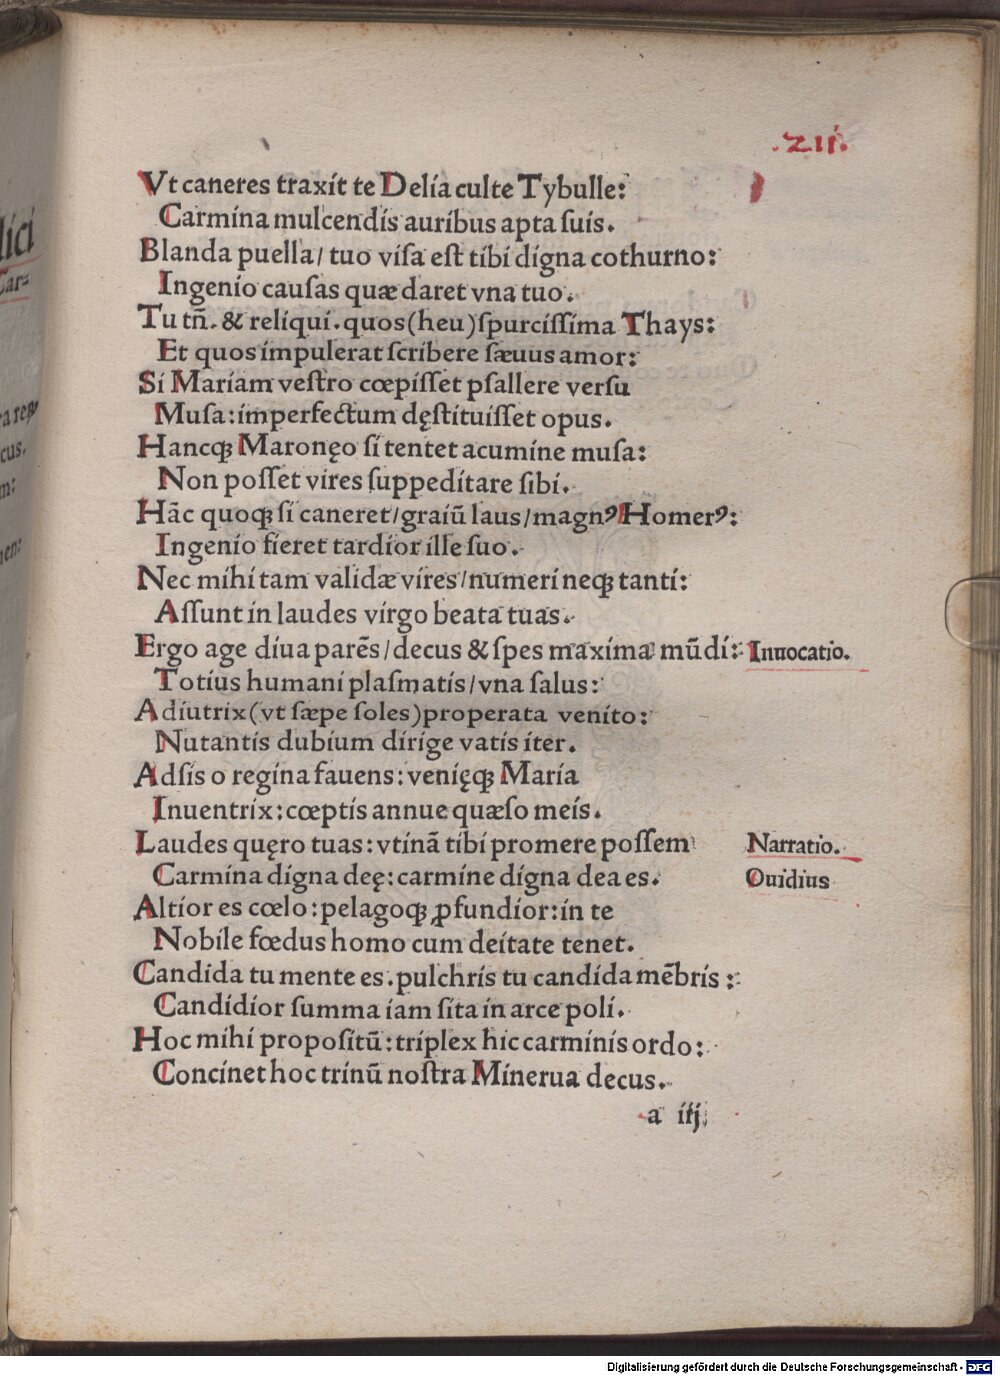 .211.
Vt caneres traxit te Delia culte Tybulle:
Carmina mulcendis auribus apta suis.
Blanda puella/ tuo visa est tibi digna cothurno:
Ingenio causas quæ daret vna tuo.
Tu tñ. & reliqui. quos (heu) spurcissima Thays:
Et quos impulerat scribere sæuus amor:
Si Mariam vestro cœpisset psallere versu
Musa: imperfectum dęstituisset opus.
Hancqꝫ Maronęo si tentet acumine musa:
Non posset vires suppeditare sibi.
Hãc quoqꝫ si caneret/ graiũ laus/ magnꝰ Homerꝰ:
Ingenio fieret tardior ille suo.
Nec mihi tam validæ vires/ numeri neqꝫ tanti:
Assunt in laudes virgo beata tuas.
Ergo age diua parẽs/ decus & spes maxima mũdi: Inuocatio.
Totius humani plasmatis/ vna salus:
Adiutrix (vt sæpe soles) properata venito:
Nutantis dubium dirige vatis iter.
Adsis o regina fauens: venięqꝫ Maria
Inuentrix: cœptis annue quæso meis.
Laudes quęro tuas: vtinã tibi promere possem Narratio.
Carmina digna deę: carmine digna dea es. Ouidius
Altior es cœlo: pelagoqꝫ ꝓfundior: in te
Nobile fœdus homo cum deitate tenet.
Candida tu mente es. pulchris tu candida mẽbris:
Candidior summa iam sita in arce poli.
Hoc mihi propositũ: triplex hic carminis ordo:
Concinet hoc trinũ nostra Minerua decus.
a iij
lici
Car=
cus.
m:
nen:
Digitalisierung gefördert durch die Deutsche Forschungsgemeinschaft - DFG